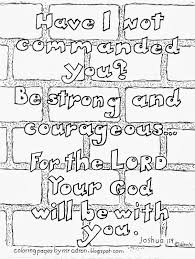 Have I not
commanded
you?
Be strong and
courageous...
For the LORD
Your God
will be with
you.
Joshua 1:9
coloring pages by mr adron.blogspot.com